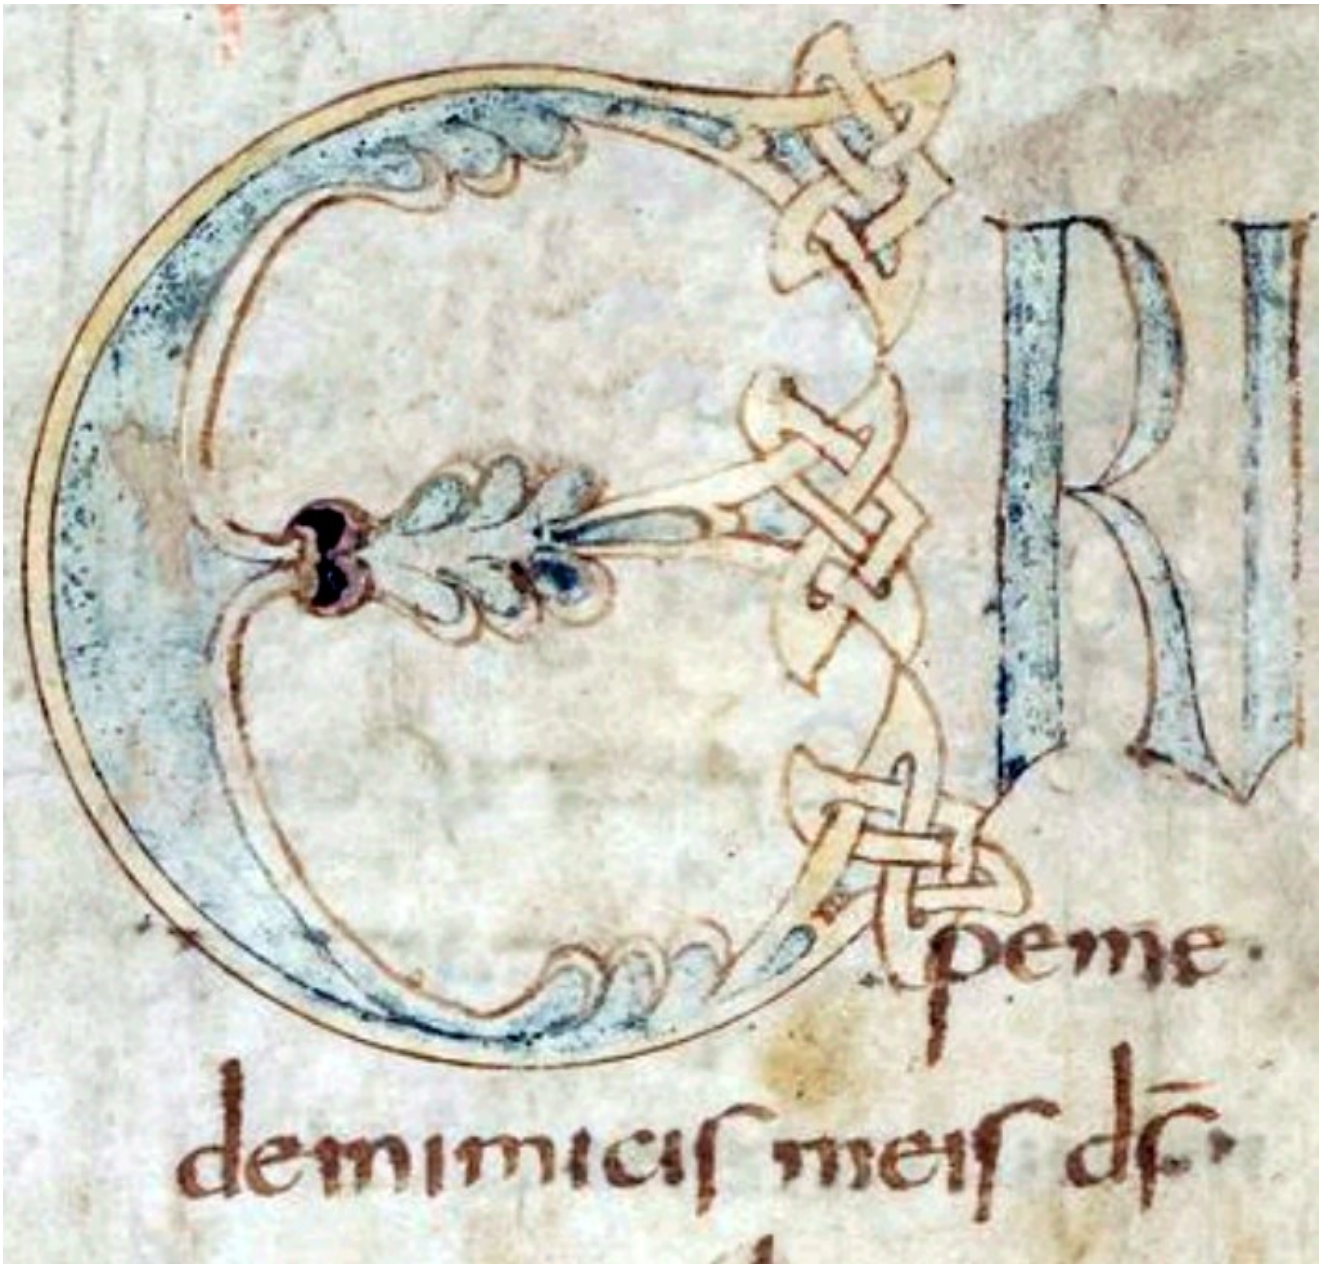 ERI
peme·
deinimicis meis ds̄·